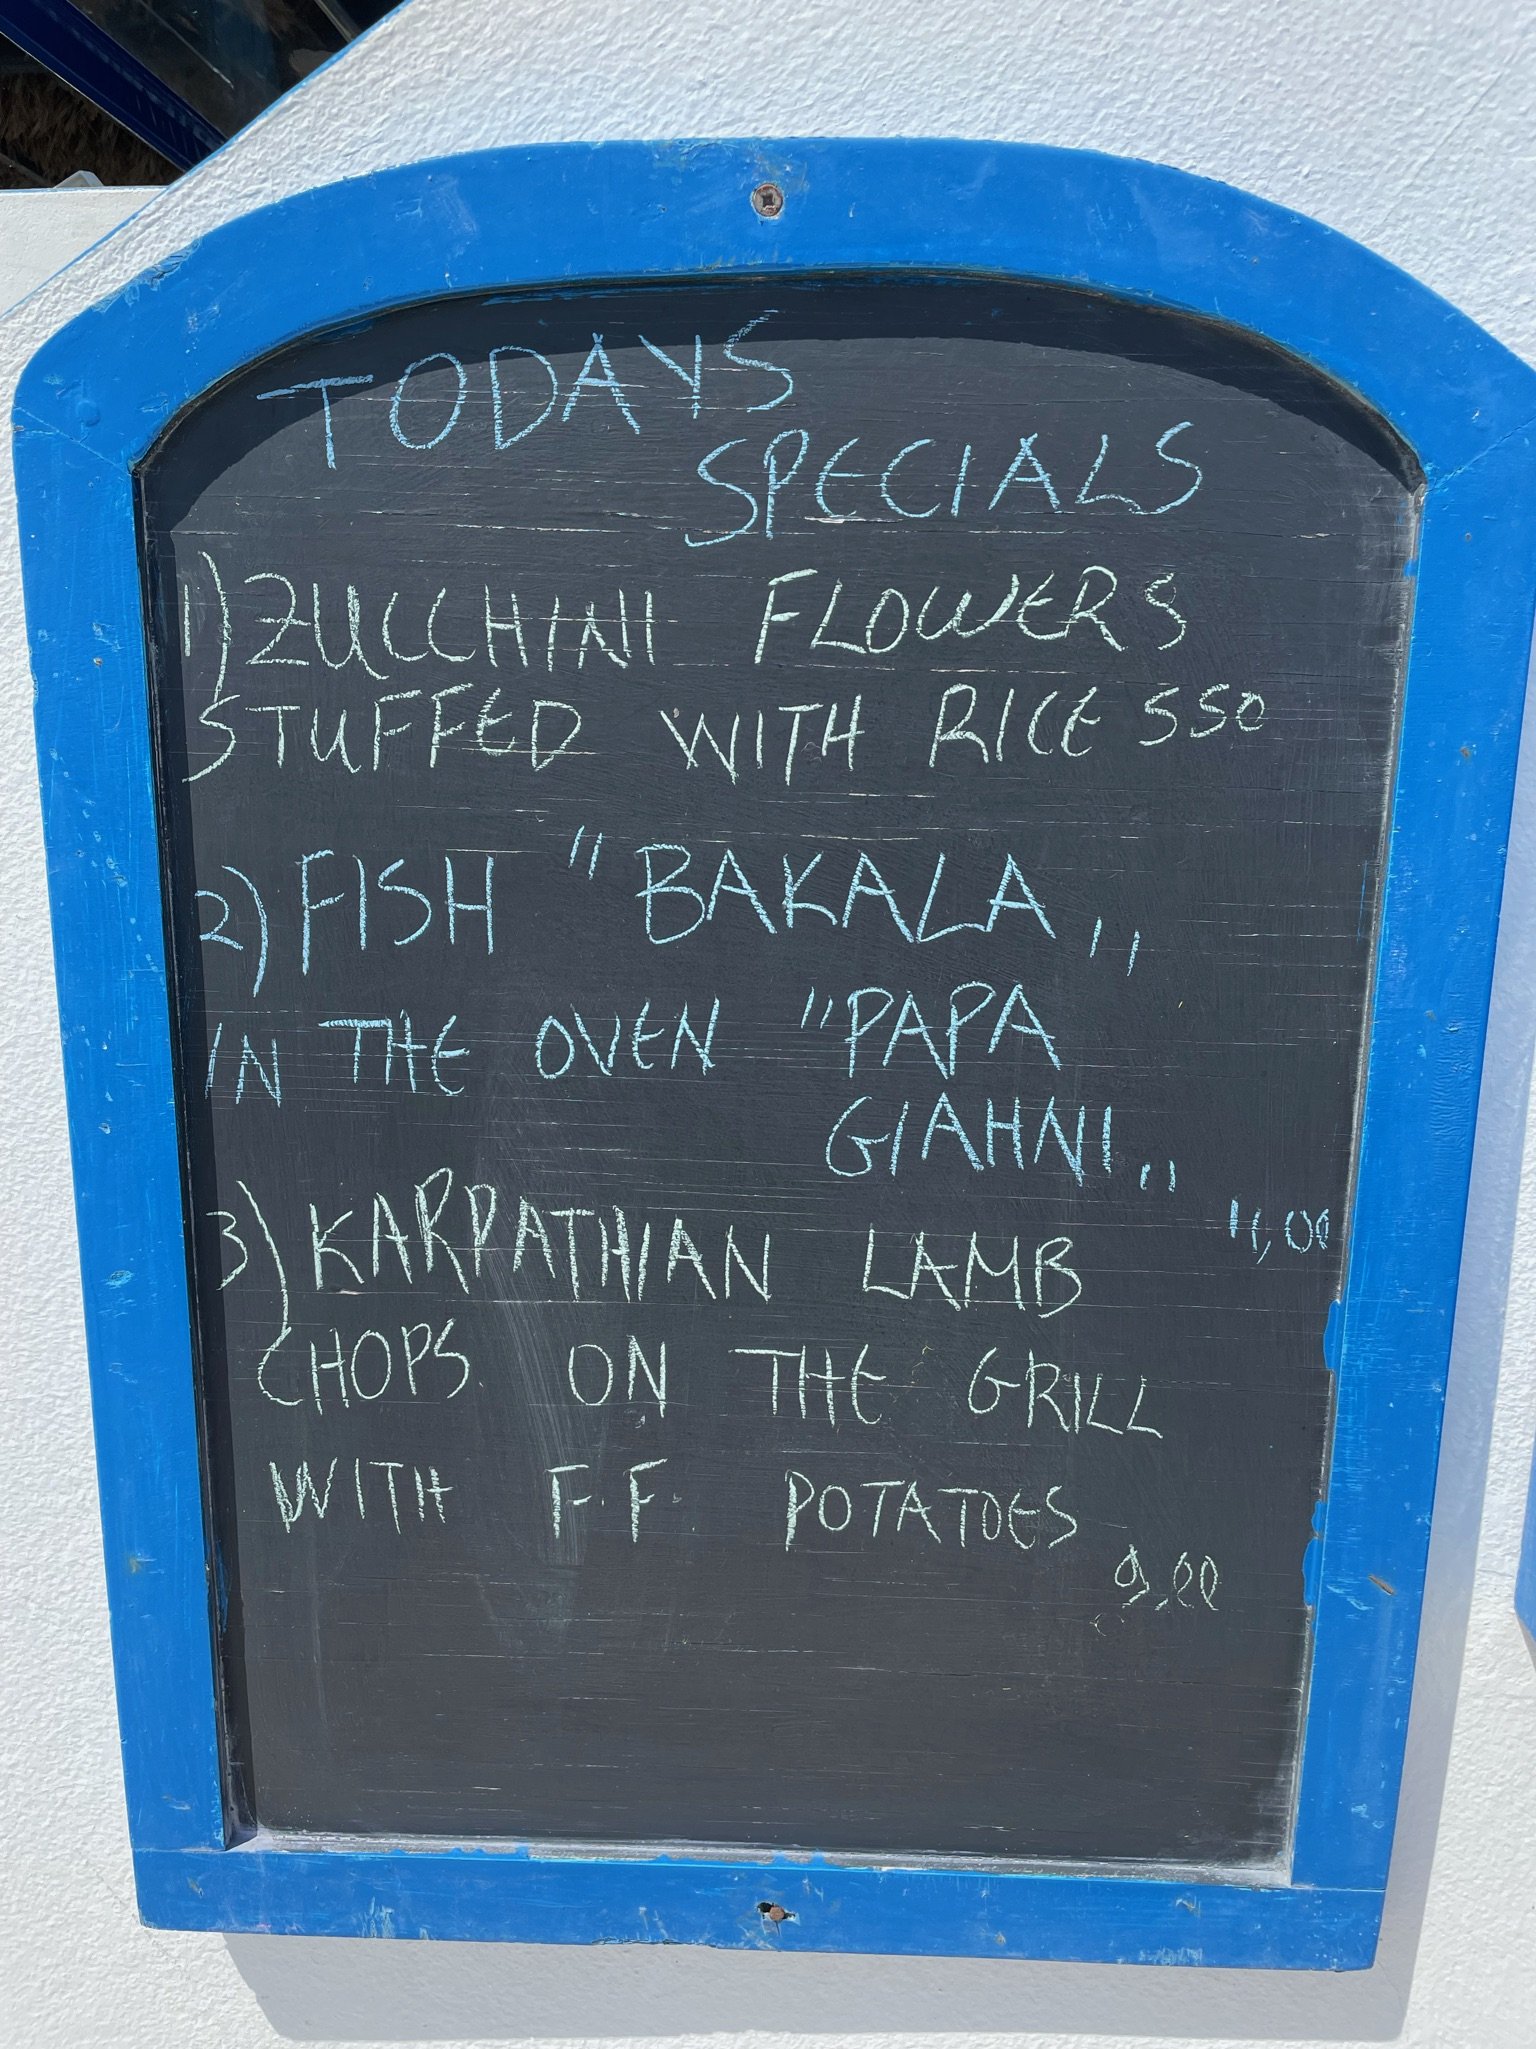 TODAYS
SPECIALS
1) ZUCCHINI FLOWERS
STUFFED WITH RICE 550
2) FISH "BAKALA„
IN THE OVEN "PAPA
GIAHNI„
11,00
3) KARPATHIAN LAMB
CHOPS ON THE GRILL
WITH F.F. POTATOES
9.00